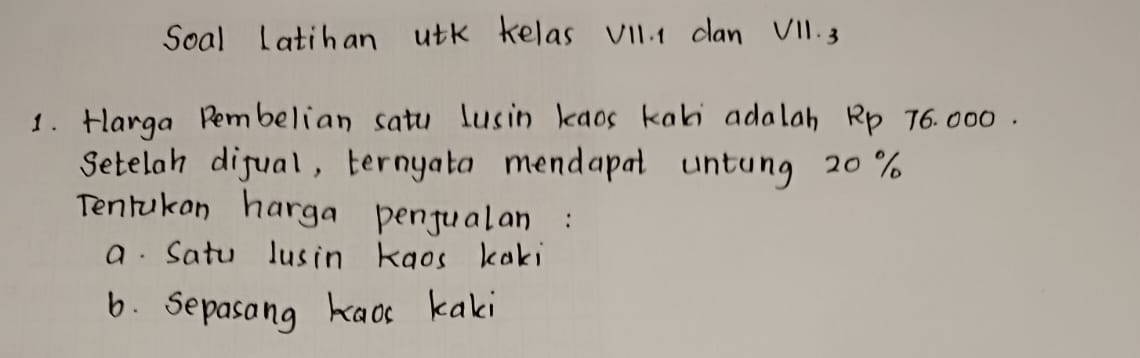 Soal Latihan utk kelas VII.1 dan VII.3
1. Harga Pembelian satu lusin kaos kaki adalah Rp 76.000.
Setelah dijual, ternyata mendapat untung 20%
Tentukan harga penjualan :
a. Satu lusin kaos kaki
b. Sepasang kaos kaki